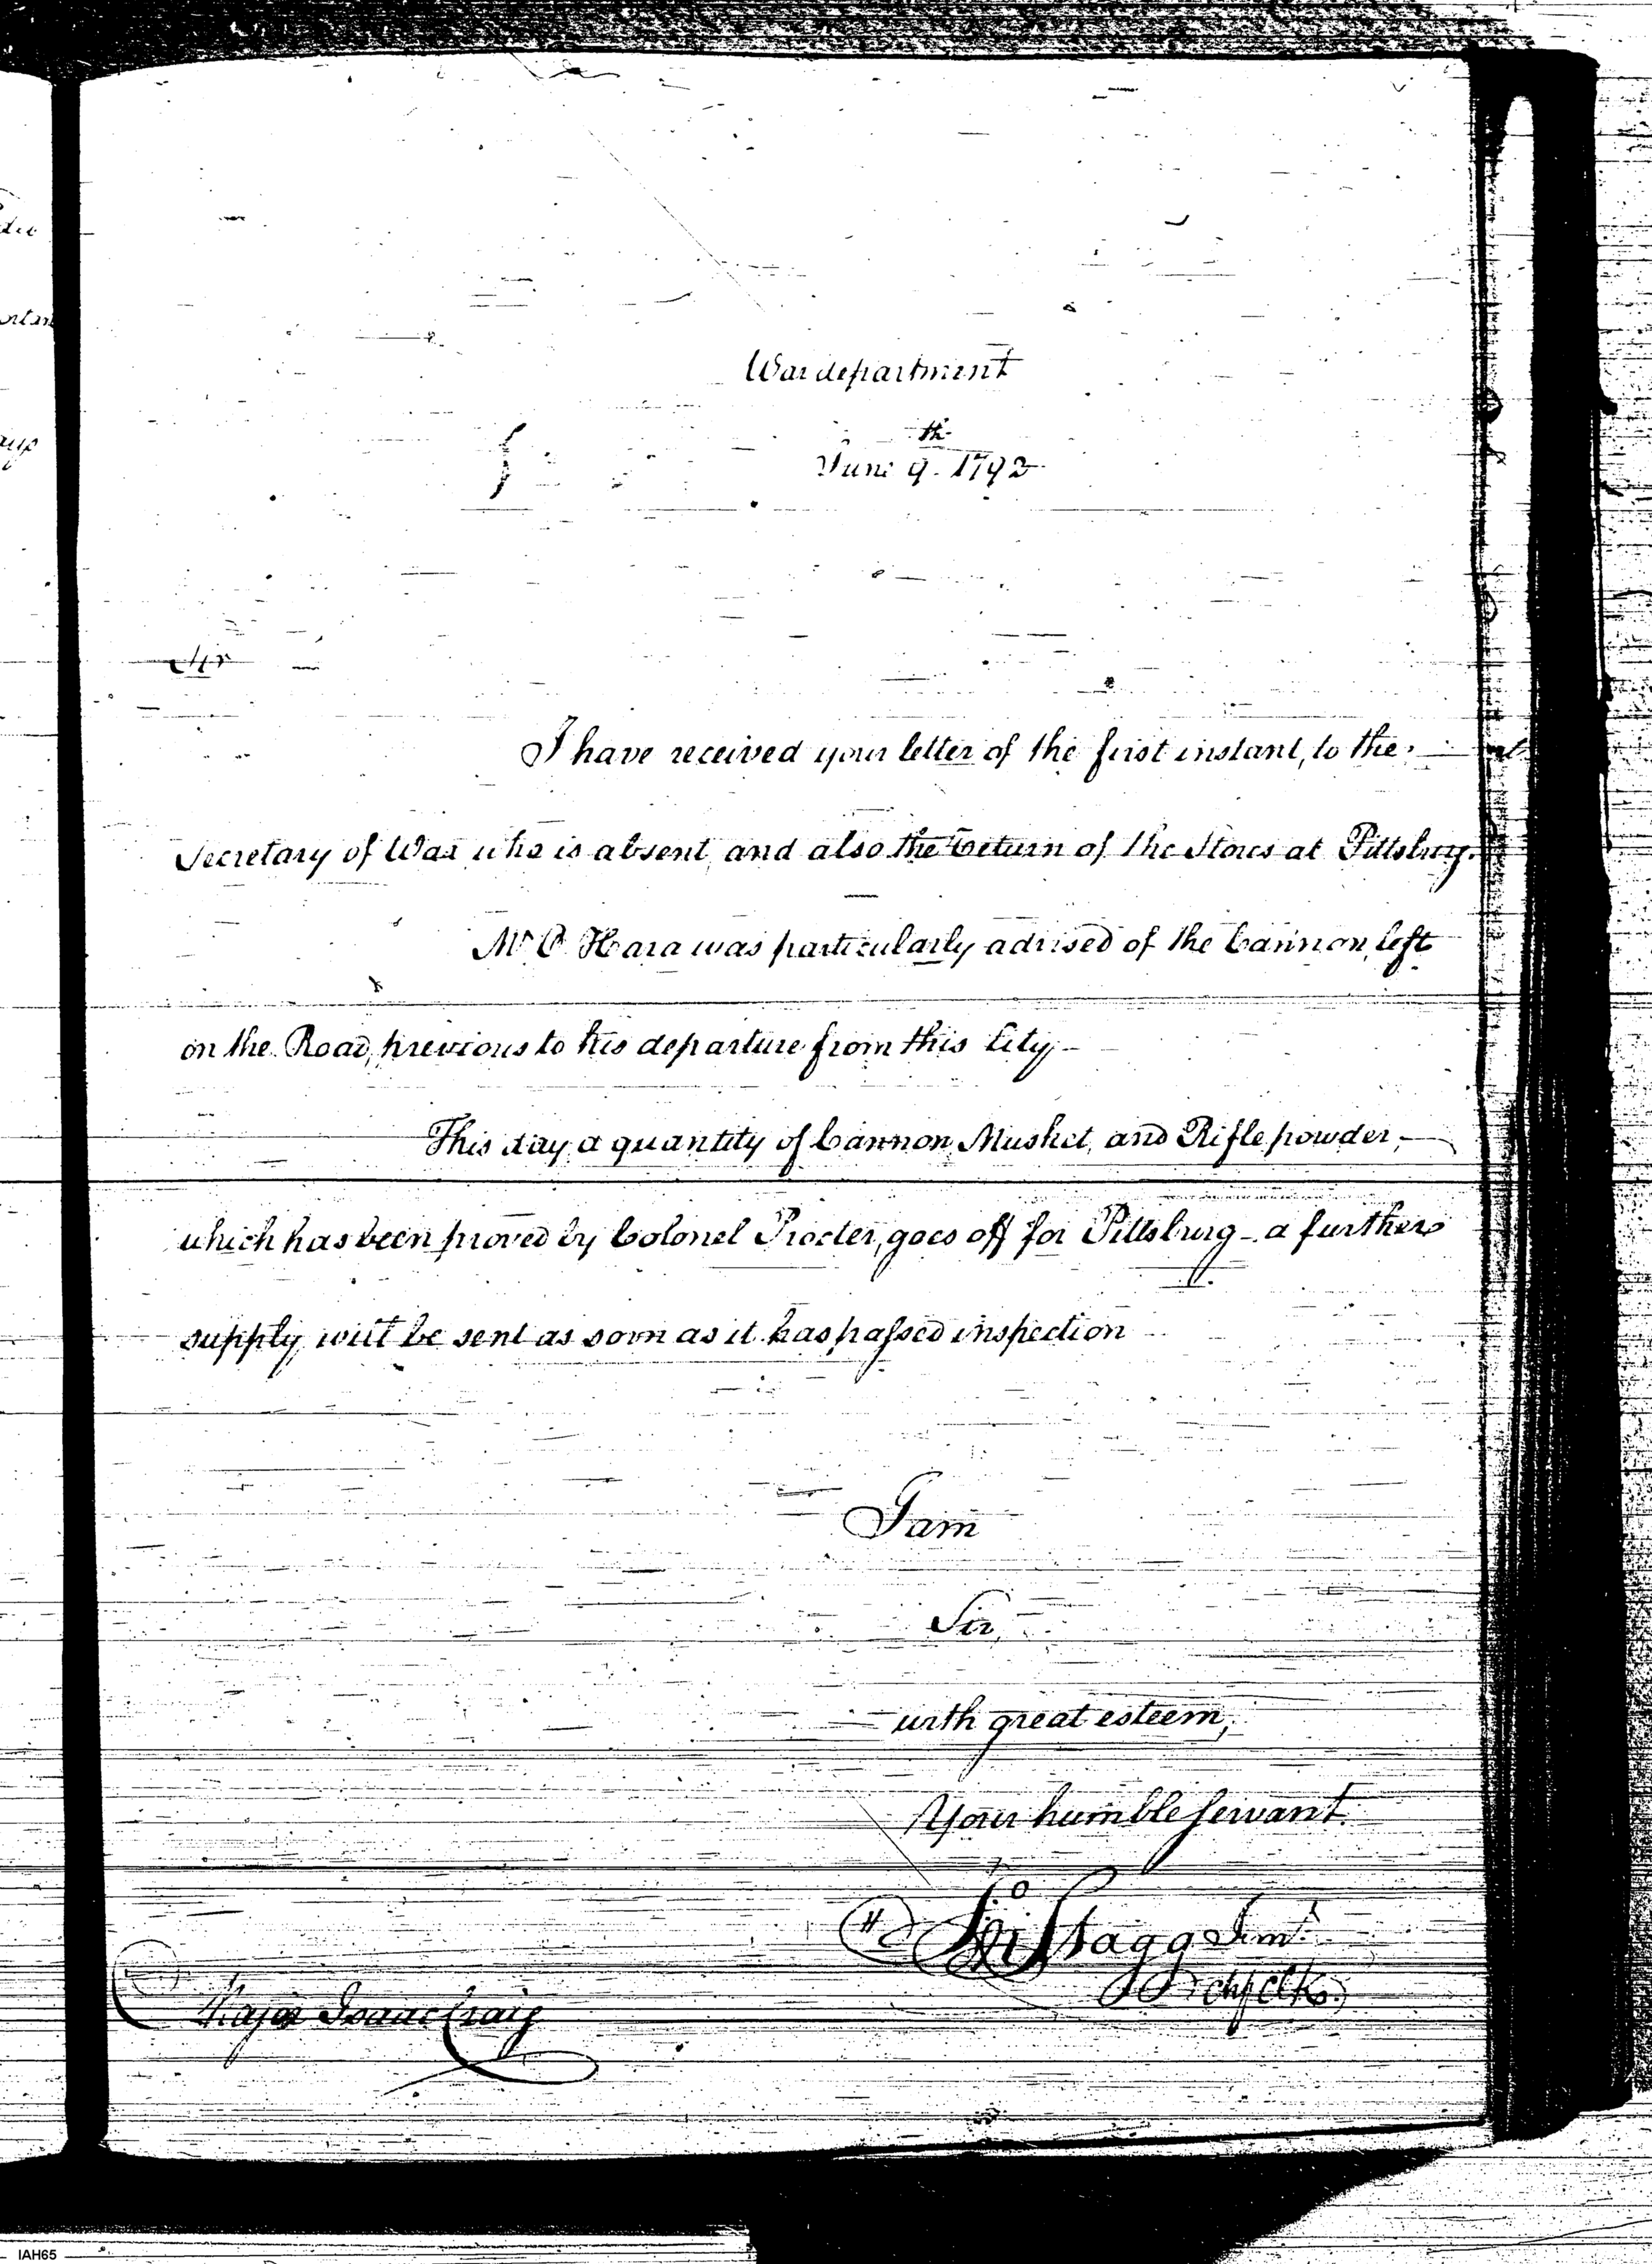 War department
June 9th 1792
Sir
I have received your letter of the first instant, to the
Secretary of War who is absent, and also the Return of the Stores at Pittsburg.
Mr O Hara was particularly advised of the Cannon, left
on the Road, previous to his departure from this City -
This day a quantity of Cannon, Musket, and Rifle powder,
which has been proved by Colonel Procter, goes off for Pittsburg - a further
supply will be sent as soon as it has passed inspection
I am
Sir,
with great esteem,
Your humble servant.
Jno Stagg Junr
Chf Clk.
Major Isaac Craig
IAH65